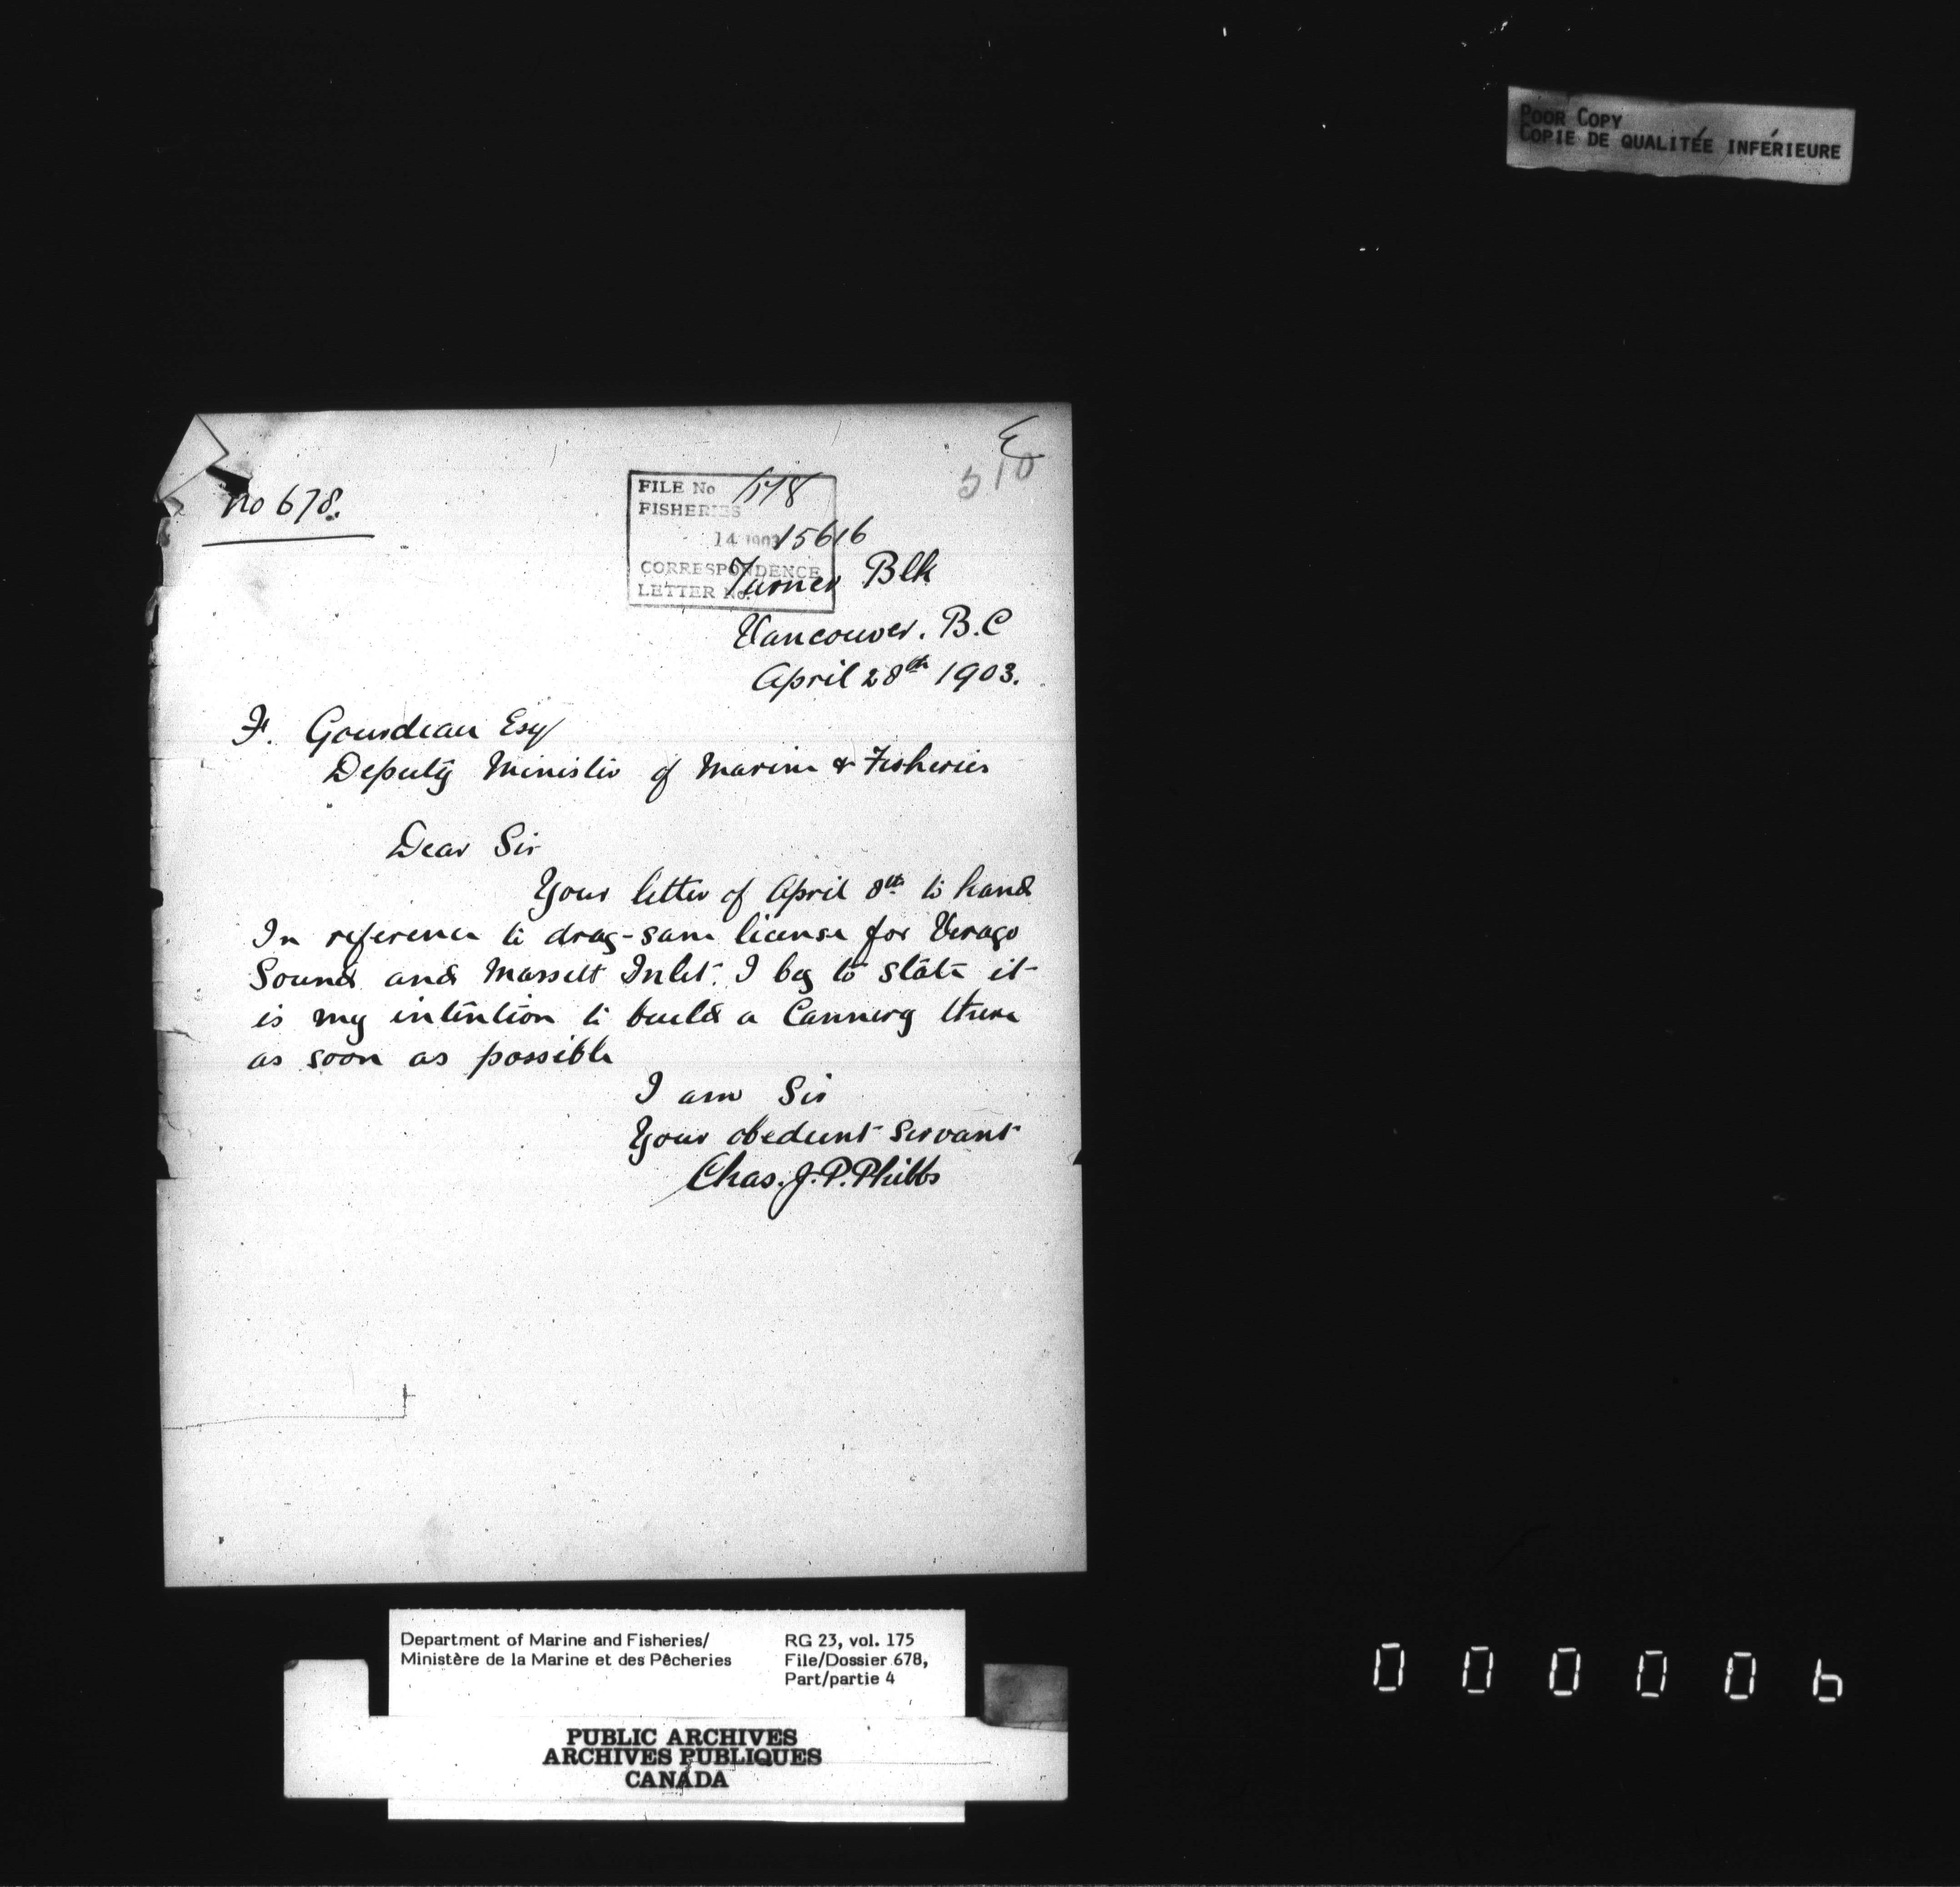 POOR COPY
COPIE DE QUALITÉE INFÉRIEURE
510
No 678.
FILE No 678
FISHERIES
14 1903 15616
CORRESPONDENCE
LETTER No.
Turner Blk
Vancouver. B.C
April 28th 1903.
F. Gourdeau Esq
Deputy Minister of Marine & Fisheries
Dear Sir
Your letter of April 8th to hand
In reference to drag-sane license for Virago
Sound and Massett Inlet. I beg to state it
is my intention to build a Cannery there
as soon as possible
I am Sir
Your obedient Servant
Chas. J. P. Phibbs
Department of Marine and Fisheries/
Ministère de la Marine et des Pêcheries
RG 23, vol. 175
File/Dossier 678,
Part/partie 4
PUBLIC ARCHIVES
ARCHIVES PUBLIQUES
CANADA
000006